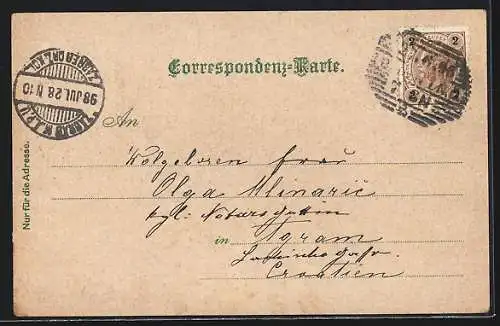 Correspondenz-Karte.
2 2
98 JUL. 28 N 10
An
Wolgeboren Frau
Olga Mlinarić
kgl. Notarsgattin
in Agram
Croatien
Nur für die Adresse.